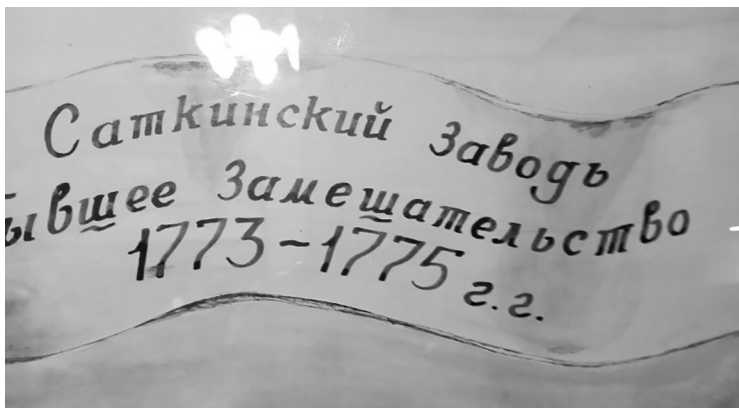 Саткинский Заводъ
бывшее Замешательство
1773-1775 г.г.